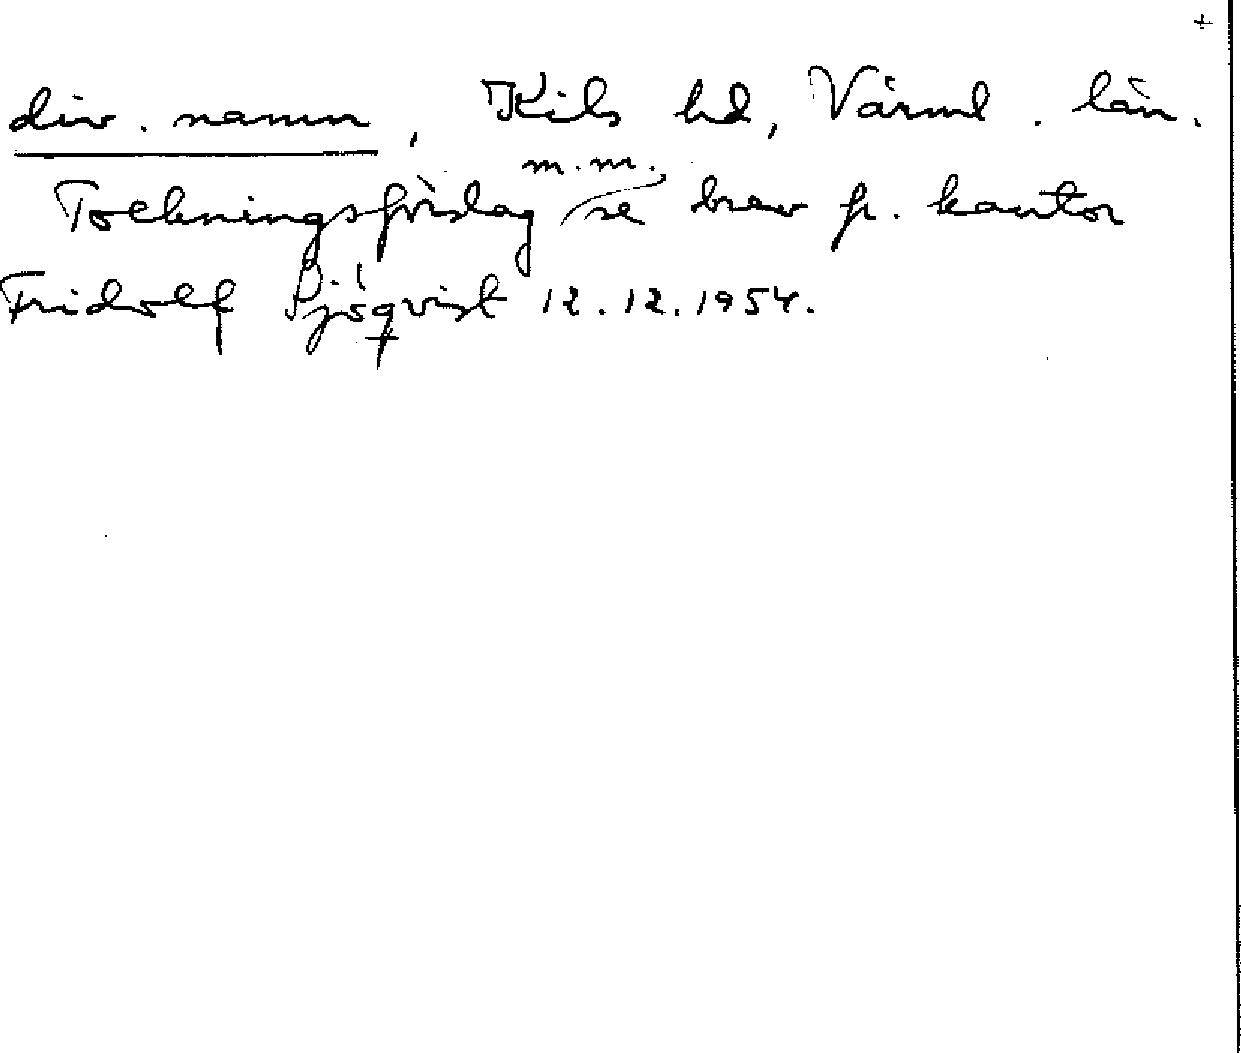 div. namn, Kils hd, Värml. län.
Tolkningsförslag m.m. se brev fr. kantor
Fridolf 12.12.1954.